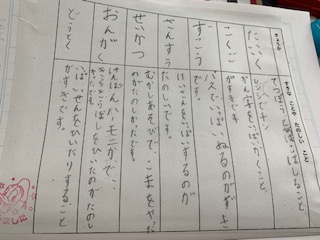 きょうか
すきな ことや たのしい こと
たいいく
てつぼう
はしること
こくご
かん字をいっぱいかくこと。
がすきです
ずこう
パスでいっぱいぬるのがすき
さんすう
けいさんをいっぱいするのが
たのしいです。
せいかつ
むかしあそびで、こまをやった
のがたのしかったです。
おんがく
けんばんハーモニカで、
きらきらぼしをひいたのがたのし
かったです。
どうとく
いっぱい
せんをひいたりすること
がすきです。